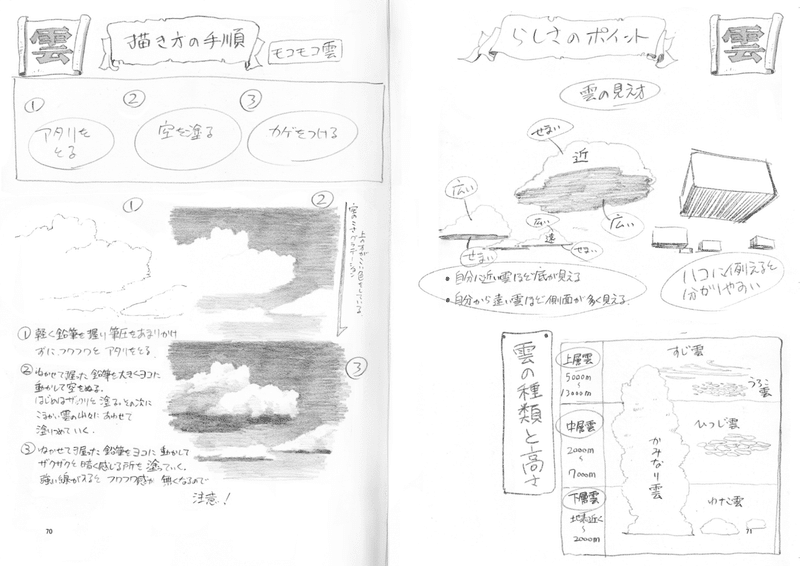 雲
描き方の手順
モコモコ雲
①
アタリを
とる
②
空を塗る
③
カゲをつける
①
②
空のこさグラデーション
上の方がこい色をしている
① 軽く鉛筆を握り筆圧をあまりかけ
ずに、フワフワとアタリをとる。
② ねかせて握った鉛筆を大きくヨコに
動かして空をぬる。
はじめはザックリと塗る。その次に
こまかい雲の
あわせて
塗りつめていく。
③
③ ねかせて握った鉛筆をヨコに動かして
ザクザクと暗く感じる所を塗っていく。
強い線がするとフワフワ感が無くなるので
注意!
70
らしさのポイント
雲
雲の見え方
せまい
近
広い
広い
せまい
広い
遠
せまい
・自分に近い雲ほど底が見える
・自分から遠い雲ほど側面が多く見える
ハコに例えると
分かりやすい
雲の種類と高さ
上層雲
5000m
~
13000m
中層雲
2000m
~
7000m
下層雲
地表近く
~
2000m
すじ雲
うろこ雲
ひつじ雲
かみなり雲
わた雲